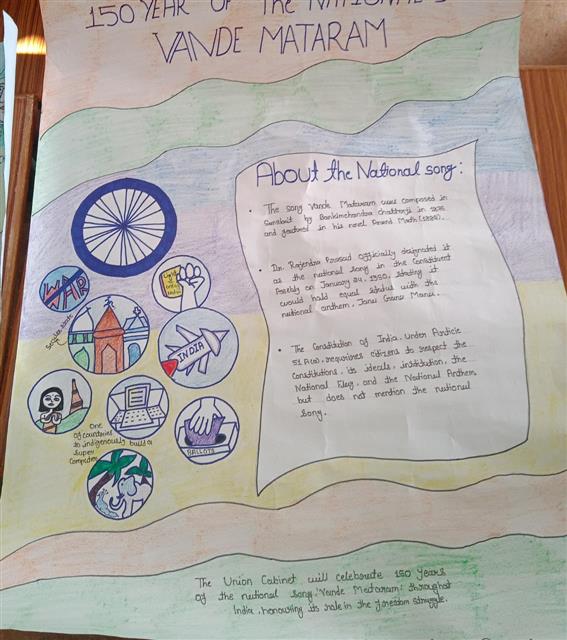 150 YEAR OF The NATIONAL S
VANDE MATARAM
About the National song:
• The song Vande Mataram was composed in
Sanskrit by Bankimchandra Chatterji in 1875
and featured in his novel Anand Math (1882).
• Dr. Rajendra Prasad officially designated it
as the national song in the Constituent
on January 24, 1950, stating it
would hold equal status with the
national anthem, Jana Gana Mana.
• The Constitution of India, Under Article
51 A(a), requires citizens to respect the
Constitutions, its ideals, institution, the
National Flag, and the National Anthem
but does not mention the national
song.
WAR
Secular state
INDIA
One
of countries
to indigenously build a
Super
Computer
BALLOTS
The Union Cabinet will celebrate 150 Years
of the national song, Vande Mataram: throughout
India, honouring its role in the freedom struggle.